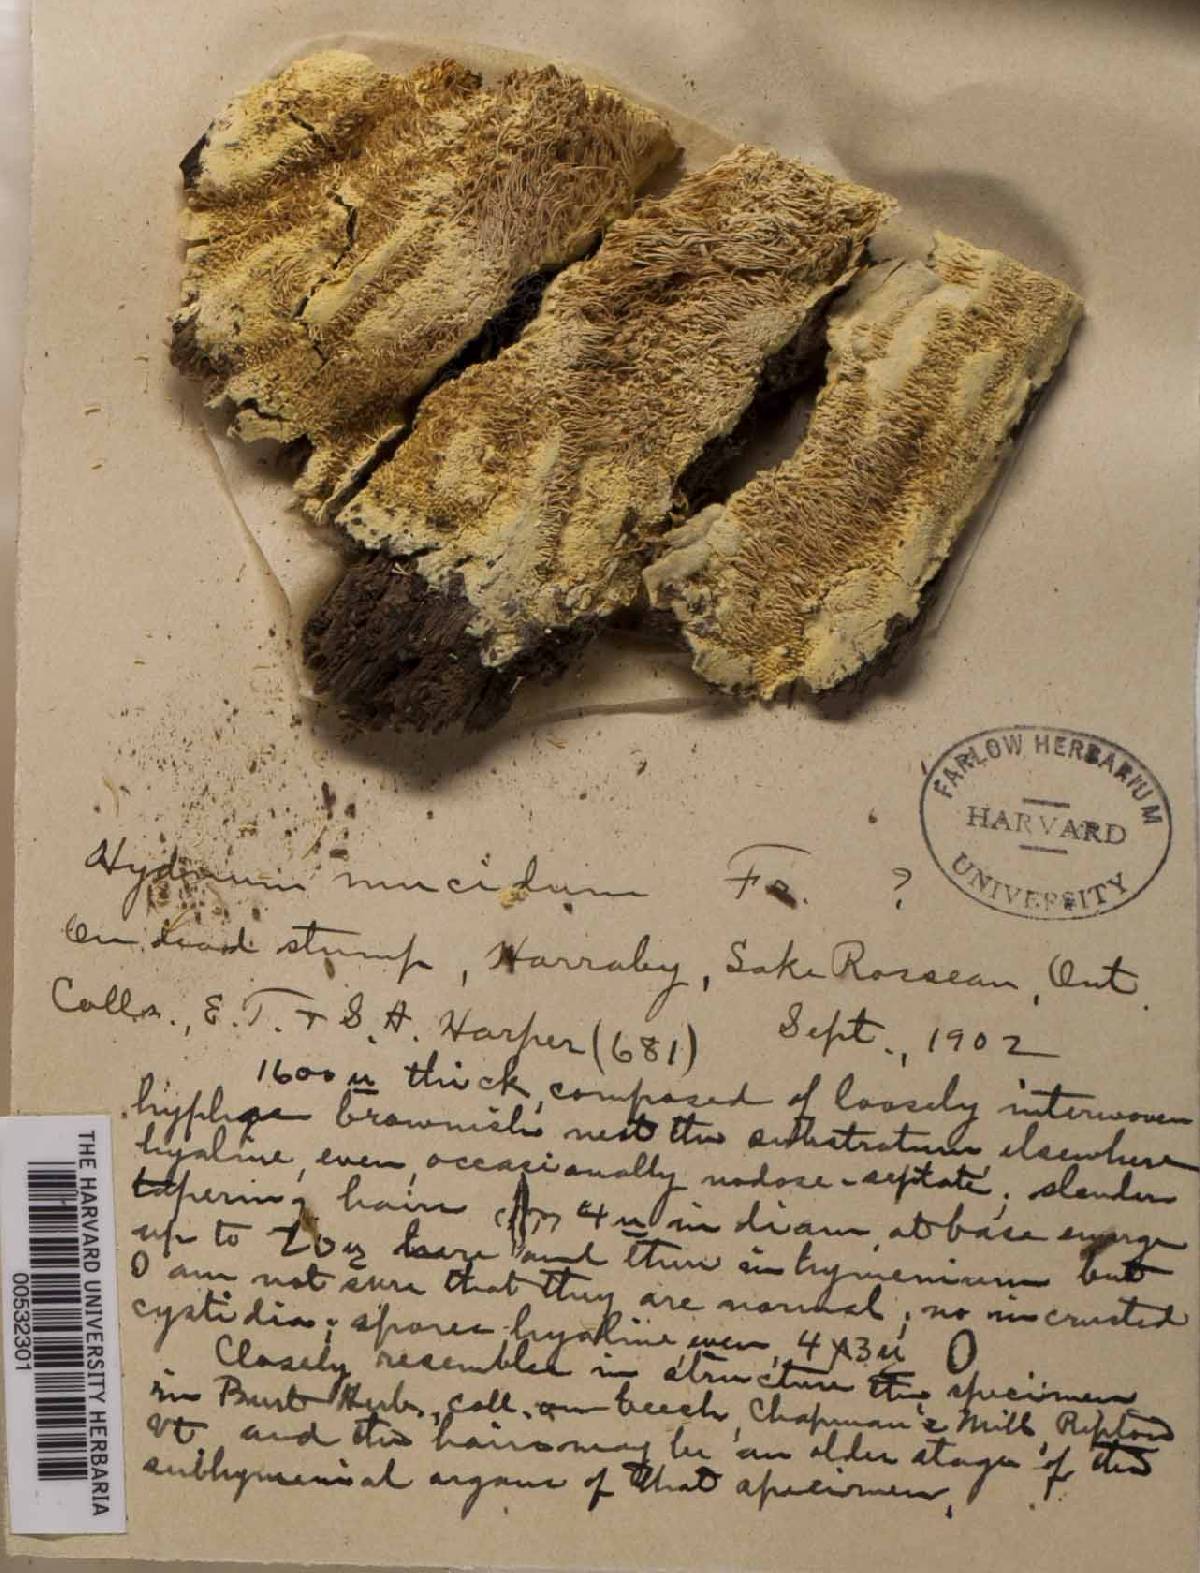 FARLOW HERBARIUM
HARVARD
UNIVERSITY
Hydnum mucidum Fr. ?
On dead stump, Harraby, Lake Rosseau, Ont.
Colls., E. T. + S. A. Harper (681) Sept., 1902
1600 u thick, composed of loosely interwoven
hyphae brownish next the substratum elsewhere
hyaline, even, occasionally nodose-septate; slender
tapering hairs 4 u in diam. at base emerge
up to 20 u here and there in hymenium but
I am not sure that they are normal; no incrusted
cystidia; spores hyaline, even, 4 x 3 u
Closely resembles in structure the specimen
in Burt Herb., coll. on beech, Chapman's Mill, Ripton
Vt and the hairs may be an older stage of the
subhymenial organs of that specimen.
THE HARVARD UNIVERSITY HERBARIA
00532301